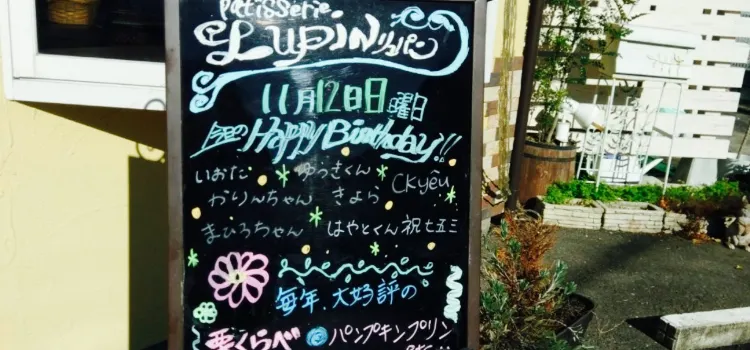 Patisserie
LUPiN ルパン
11月12日日曜日
Happy Birthday!!
いおた ゆうきくん CKyêu
かりんちゃん きよら
まひろちゃん はやとくん祝七五三
毎年、大好評の
栗くらべ パンプキンプリン